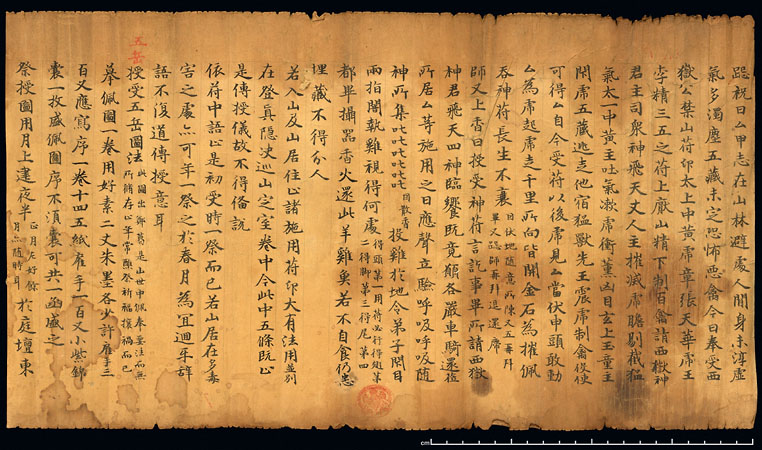 跪祝曰厶甲志在山林避處人間身未淳虛
氣多濁塵五藏未定恐怖惡禽今日奉受西
嶽公禁山符印太上中黃虎章張天華虎王
李精三五之符上厭山精下制百禽請西嶽神
君主司衆神飛天丈人主摧滅虎膽剔截猛
氣太一中黃主吐氣漱虎衝董凶目玄上玉童主
閇虎五藏逃走他宿猛獸先王震虎制禽役使
可得厶自今受符以後虎見厶當伏申頭敢動
厶為虎起虎走千里所向皆開金石為摧佩
吞神符長生不衰
師又上香曰授受神符言訖事畢所請西嶽
神君飛天四神臨饗既竟願各嚴車騎還復
所居厶等施用之日應聲立驗呼吸呼吸隨
神所集叱叱叱叱叱叱 投雞於地令弟子閇目
兩指閣執雞視得何處
都畢攝器香火還此羊雞奠若不自食仍悉
埋藏不得分人
若入山及山居住止諸施用符印大有法用並別
在登真隱决巡山定室卷中今此中五條既止
是傳授儀故不得俻説
依符中語止是初受時一祭而已若山居在多毒
害之處亦可年一祭之於春月為宜週年辞
語不復道傳授意耳
五岳
授受五岳圖法 此圖出鄭君是山世中佩奉要法而無所儲存止年常醮祭祈福攘禍而已
摹佩圖一卷用好素二丈朱墨各少許雇手三
百又應寫序一卷十四五紙雇手一百又小紫錦
囊一枚盛佩圖序不須囊可共一函盛之
祭授圖用月上建夜半 於庭壇東